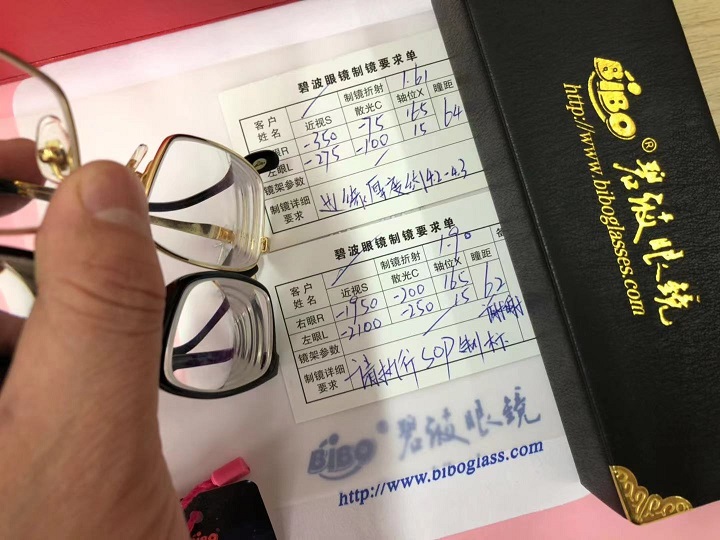 碧波眼镜制镜要求单
客户姓名 近视S 制镜折射 1.61
散光C 轴位X 瞳距
眼R -350 -75 165 64
左眼L -275 -100 15
镜架参数
制镜详细要求
碧波眼镜制镜要求单
客户姓名 近视S 制镜折射 1.90
散光C 轴位X 瞳距
右眼R -1950 -200 165 62
左眼L -2100 -250 15
镜架参数 谢谢
制镜详细要求 请执行SOP制标
BiBO® 碧波眼镜
http://www.biboglass.com
BiBO® 碧波眼镜
http://www.biboglasses.com